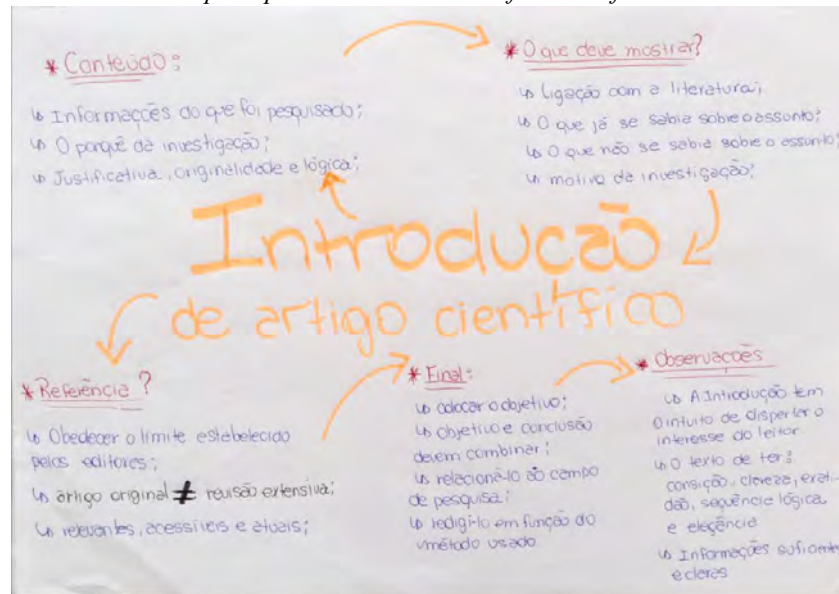 * Conteúdo:
↳ Informações do que foi pesquisado;
↳ O porquê da investigação;
↳ Justificativa, originalidade e lógica;
* O que deve mostrar?
↳ Ligação com a literatura;
↳ O que já se sabia sobre o assunto;
↳ O que não se sabia sobre o assunto;
↳ motivo da investigação;
Introdução
de artigo científico
* Referência?
↳ Obedecer o limite estabelecido
pelos editores;
↳ artigo original ≠ revisão extensiva;
↳ relevantes, acessíveis e atuais;
* Final:
↳ colocar o objetivo;
↳ objetivo e conclusão
devem combinar;
↳ relacioná-lo ao campo
de pesquisa;
↳ redigi-lo em função do
método usado
* Observações
↳ A Introdução tem
o intuito de disperter o
interesse do leitor
↳ O texto de ter:
consição, clareza, exati-
dão, sequência lógica
e elegância
↳ Informações
e claras